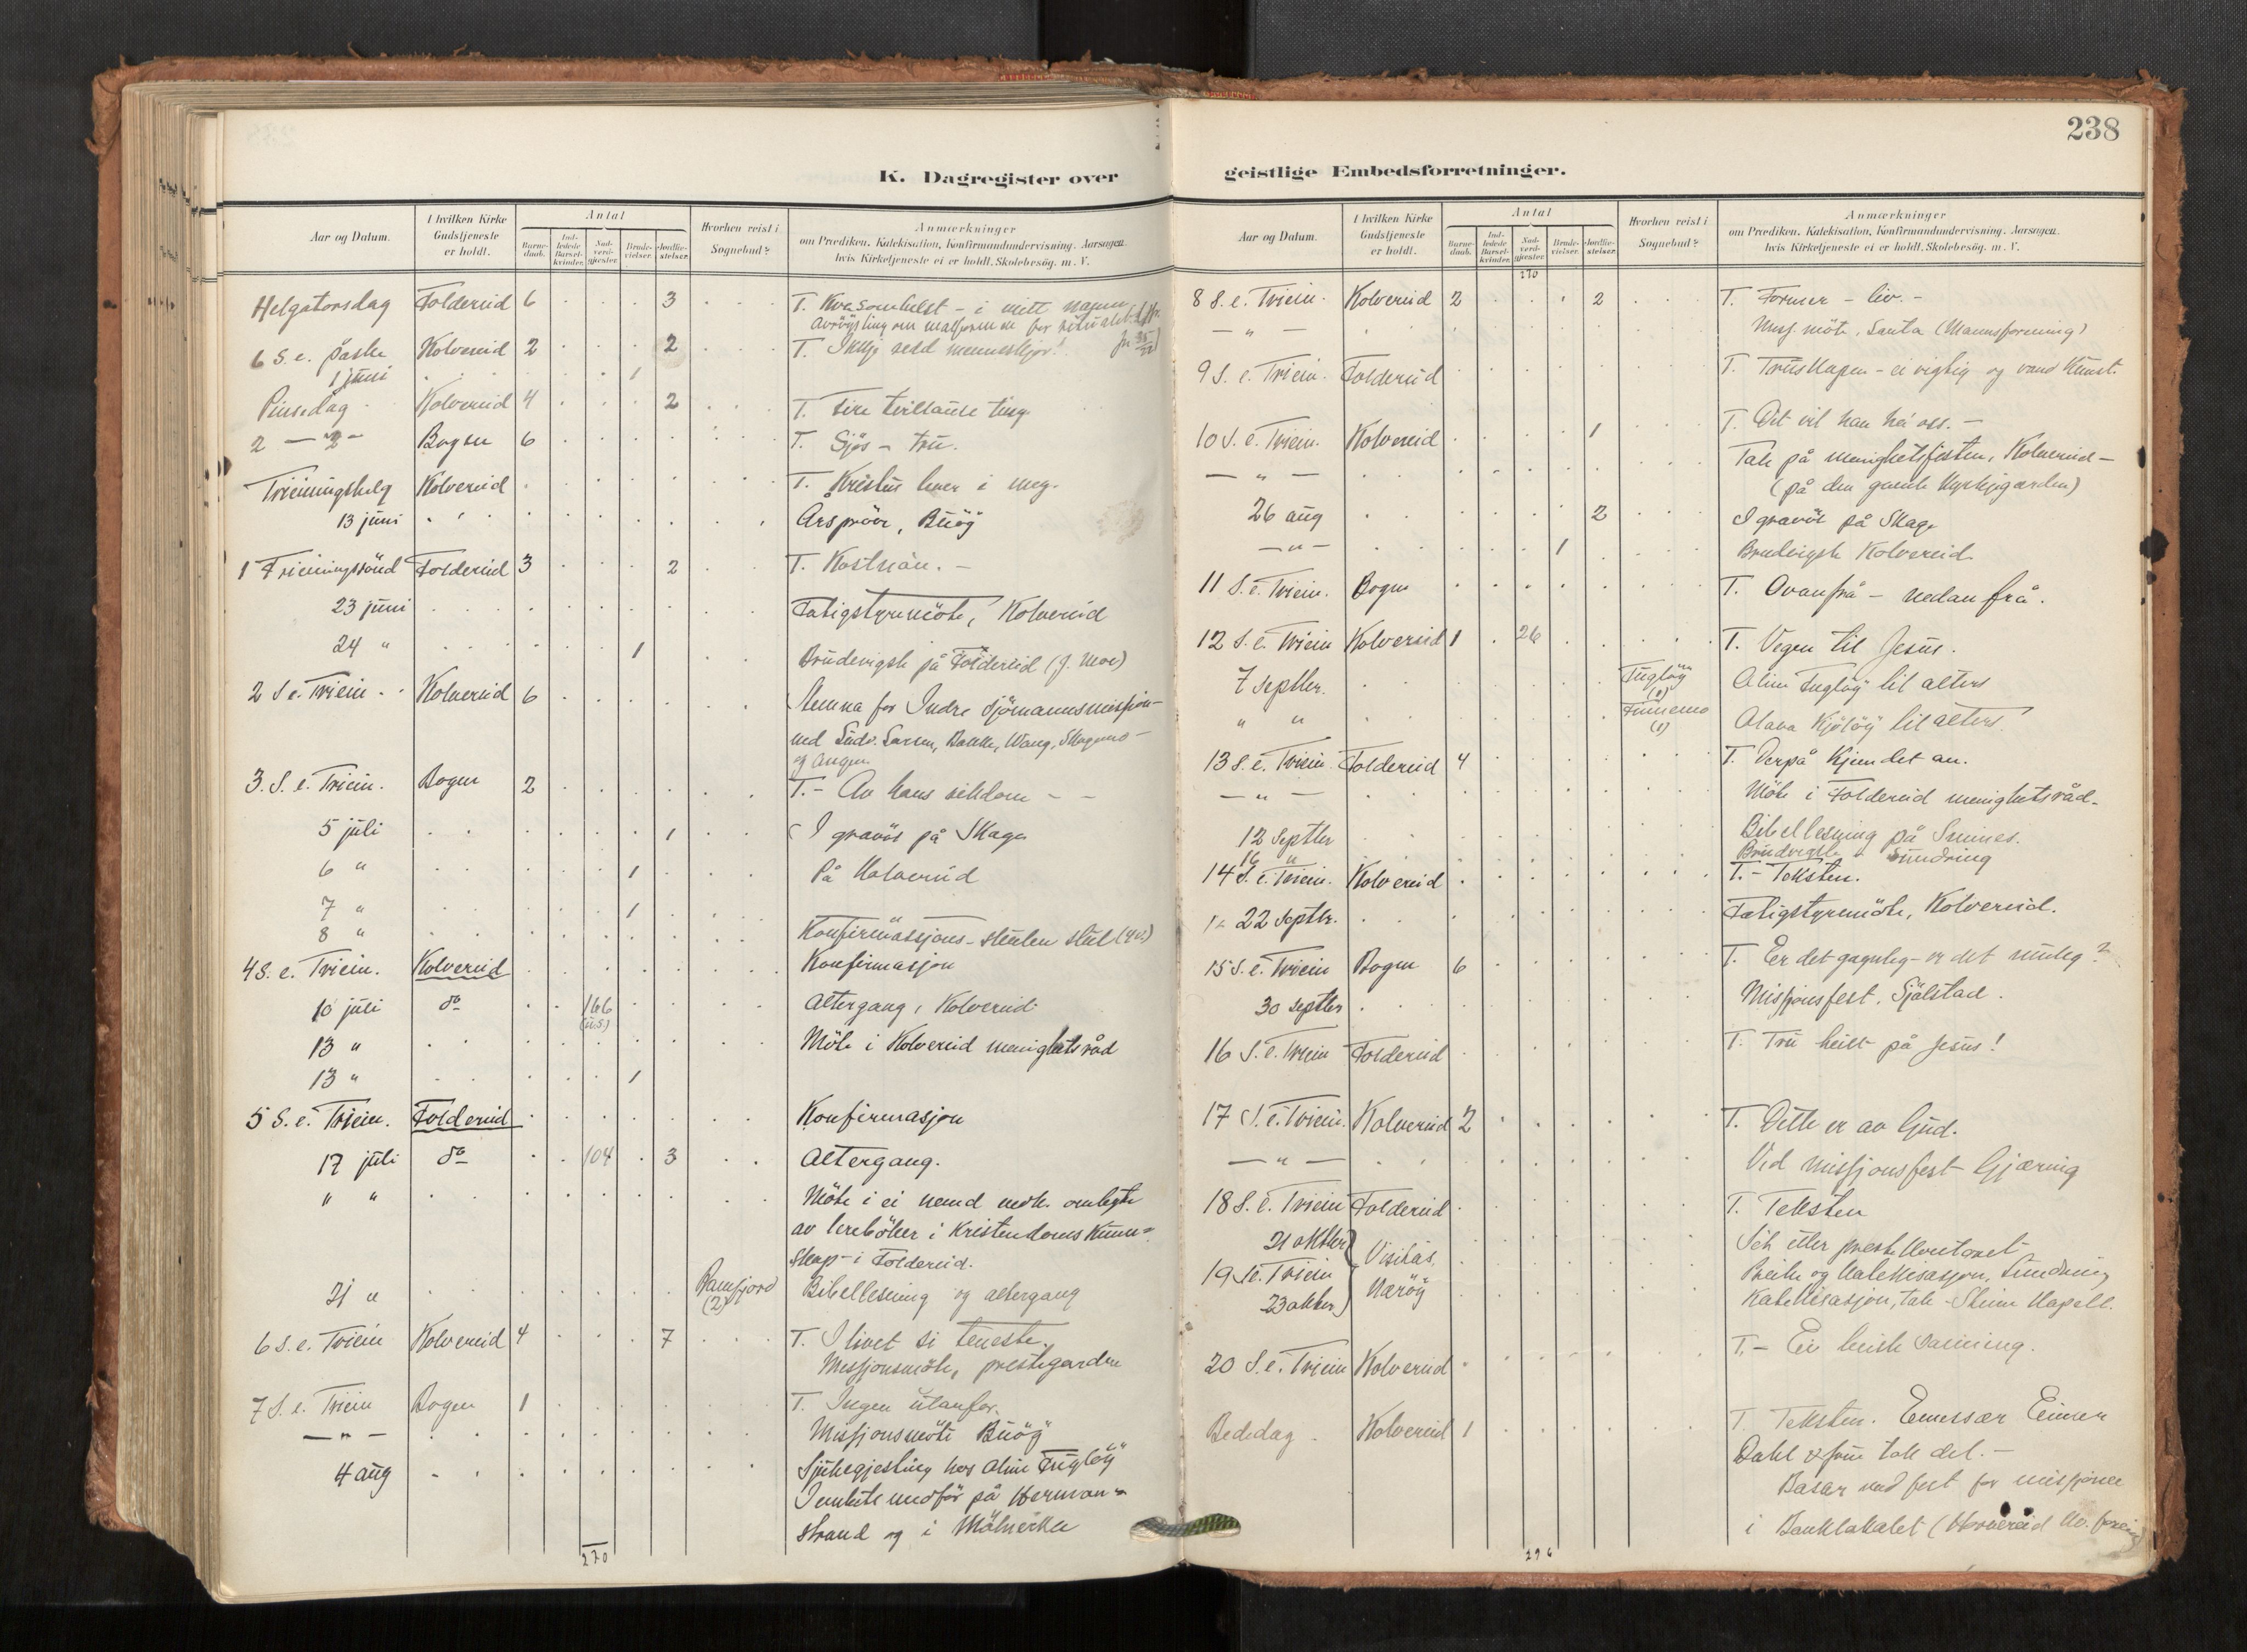 238
K. Dagregister over geistlige Embedsforretninger.
Aar og Datum. I hvilken Kirke Gudstjeneste er holdt. Antal Barne-daab. Ind-ledede Barsel-kvinder. Nad-verd-gjæster. Brude-vielser. Jordfæ-stelser. Hvorhen reist i Sognebud? Anmærkninger om Prædiken, Katekisation, Konfirmandundervisning, Aarsagen hvis Kirketjeneste ei er holdt, Skolebesög, m. V.
Helgatorsdag Foldereid 6 3 T. Kva somhelst - i mitt namn
6 S. e. påske Kolvereid 2 2 T. Ikkje redd menneskjor!
1 juni 1
Pinsedag Kolvereid 4 2 T. Fire tvillause ting
2 — " — Bogen 6 T. Sjös - tru.
Treiningshelg Kolvereid T. Kristus lever i meg.
13 juni Årspröve, Buöy
1 Treiningssönd Foldereid 3 2 T. Kostnan. -
23 juni Fatigstyremöte, Kolvereid
24 " 1 Brudevigsle på Foldereid (J. Moe)
2 S e. Triein. Kolvereid 6 Stemna for Indre Sjömannsmisjon -
med Ludv. Larsen, Bakke, Wang, Skagmo -
og Angen
3. S. e. Triein. Bogen 2 T. - Av hans rikdom - -
5 juli 1 I gravöl på Skage
6 " 1 På Kolvereid
7 " 1
8 " Konfirmasjons-skulen slutt
4 S. e. Triein. Kolvereid Konfirmasjon
10 juli do 166 Altergang, Kolvereid
13 " Möte i Kolvereid menighetsråd
13 " 1
5 S. e. Triein. Foldereid Konfirmasjon
17 juli do 104 3 Altergang.
" " Möte i ei nemd vedk. ombyte
av lereböker i Kristendomskunn=
skap - i Foldereid.
21 " Ramfjord (2) Bibellesning og altergang
6 S. e. Triein Kolvereid 4 7 T. I livet si teneste.
Misjonsmöte, prestegarden
7 S. e. Triein Bogen 1 T. Ingen utanfor.
— " — Misjonsmöte Buöy
4 aug Sjukegjesting hos Alise Fuglöy
Iembetsmedför på Herman=
strand og i Mölnvika
270
Aar og Datum. I hvilken Kirke Gudstjeneste er holdt. Antal Barne-daab. Ind-ledede Barsel-kvinder. Nad-verd-gjæster. Brude-vielser. Jordfæ-stelser. Hvorhen reist i Sognebud? Anmærkninger om Prædiken, Katekisation, Konfirmandundervisning, Aarsagen hvis Kirketjeneste ei er holdt, Skolebesög, m. V.
270
8 S. e. Triein. Kolvereid 2 2 T. Former - liv. -
— " — Misj. möte, Santa (Mannsforening)
9 S. e. Triein. Foldereid T. Truskapen - ei vigtig og vand kunst.
10 S. e. Triein. Kolvereid 1 T. Det vil han ha oss. -
— " — Tale på menighetsfesten, Kolvereid -
(på den gamle kyrkjegarden)
26 aug 2 I gravöl på Skage
— " — 1 Brudvigsle Kolvereid
11 S. e. Triein. Bogen T. Ovanfrå - nedanfrå.
12 S. e. Triein Kolvereid 1 26 T. Vegen til Jesus.
7 septbr. Fuglöy (1) Alise Fuglöy til alters
" " Finnemo (1) Olava Kjölöy til alters
13 S. e. Triein Foldereid 4 T. Derpå kjem det an.
— " — Möte i Foldereid menighetsråd.
12 septbr Bibellesning på Sninnes.
16 " Brudvigsle - Sundring
14 S. e. Triein. Kolvereid T. - Teksten.
22 septbr. Fatigstyremöte, Kolvereid.
15 S. e. Triein Bogen 6 T. Er det gagnleg - er det muleg?
30 septbr Misjonsfest, Sjålstad.
16 S. e. Triein Foldereid T. Tru heilt på Jesus!
17 S. e. Triein. Kolvereid 2 T. Dette er av Gud.
— " — Ved misjonsfest Gjæring
18 S. e. Triein Foldereid T. Teksten
21 oktbr Visitas,
19 S e. Triein Næröy Preike og katekisasjon, Sundring
23 oktbr Katekisasjon, tale - Steine kapell.
20 S. e. Triein Kolvereid T. -
Bededag Kolvereid 1 T. Teksten. Emissær Einar
Dahl & frue tok del. -
Basar med fest for misjonen
i Banklokalet
296